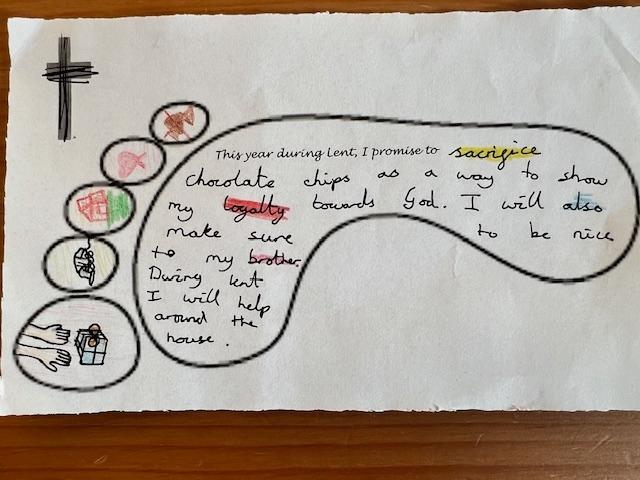 This year during Lent, I promise to sacrifice
chocolate chips as a way to show
my loyalty towards God. I will also
make sure to be nice
to my brother.
During lent
I will help
around the
house.